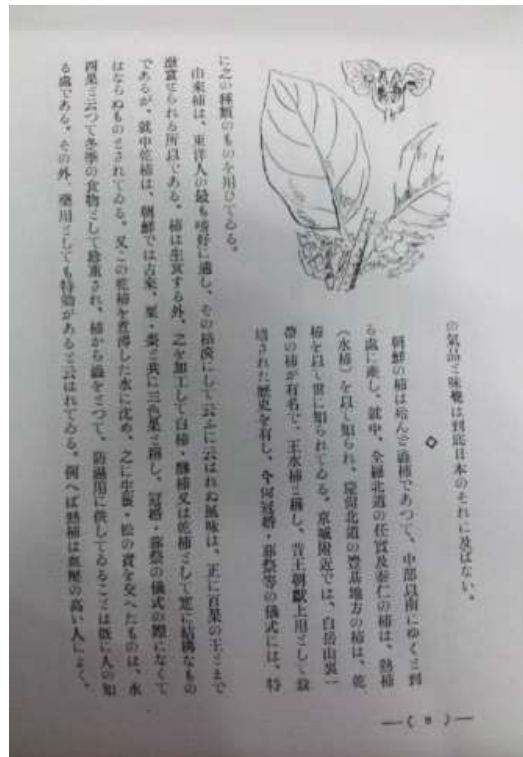 の氣品と味覺は到底日本のそれに及ばない。
◇
朝鮮の柿は殆んど澁柿であつて、中部以南にゆくと到
る處に產し、就中、全羅北道の任實及泰仁の柿は、熟柿
(水柿)を以て知られ、慶尙北道の豊基地方の柿は、乾
柿を以て世に知られてゐる。京城附近では、白岳山裏一
帶の柿が有名で、王水柿と稱し、昔王朝獻上用として栽
培された歷史を有し、今何冠婚・葬祭等の儀式には、特
に之の種類のものを用ひてゐる。
由來柿は、東洋人の最も嗜好に適し、その淡にして云ふに云はれぬ風味は、正に百果の王とまで
激賞せられる所以である。柿は生食する外、之を加工して白柿・醂柿又は乾柿として寔に結構なもの
であるが、就中乾柿は、朝鮮では古來、栗・棗と共に三色果と稱し、冠婚・葬祭の儀式の際になくて
はならぬものとされてゐる。又この乾柿を煮沸した水に沈め、之に生薑・松の實を交へたものは、水
果と云つて冬季の食物として珍重され、柿から澁をとつて、防濕用に供してゐることは旣に人の知
る處である。その外、藥用としても特効があると云はれてゐる。例へば熟柿は血壓の高い人によく、
—( 8 )—